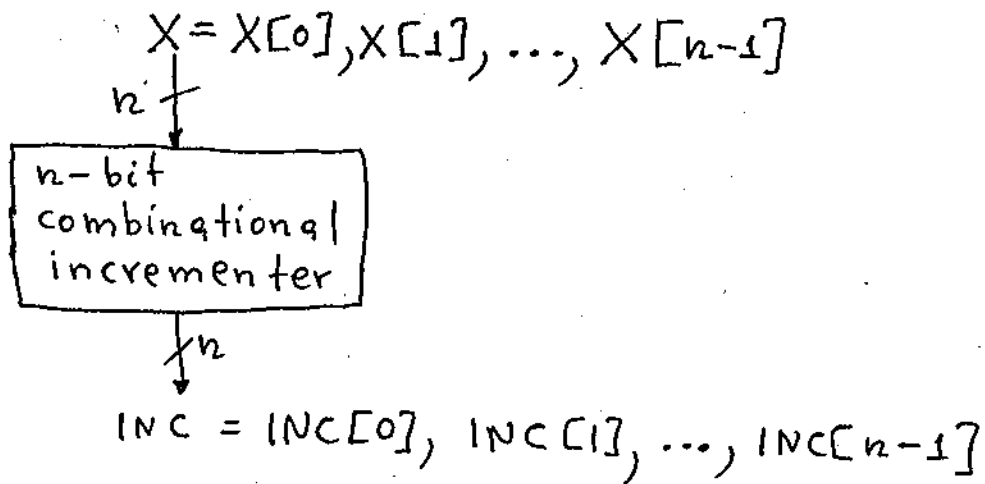 X = X[0], X[1], ..., X[n-1]
n
n-bit
combinational
incrementer
n
INC = INC[0], INC[1], ..., INC[n-1]